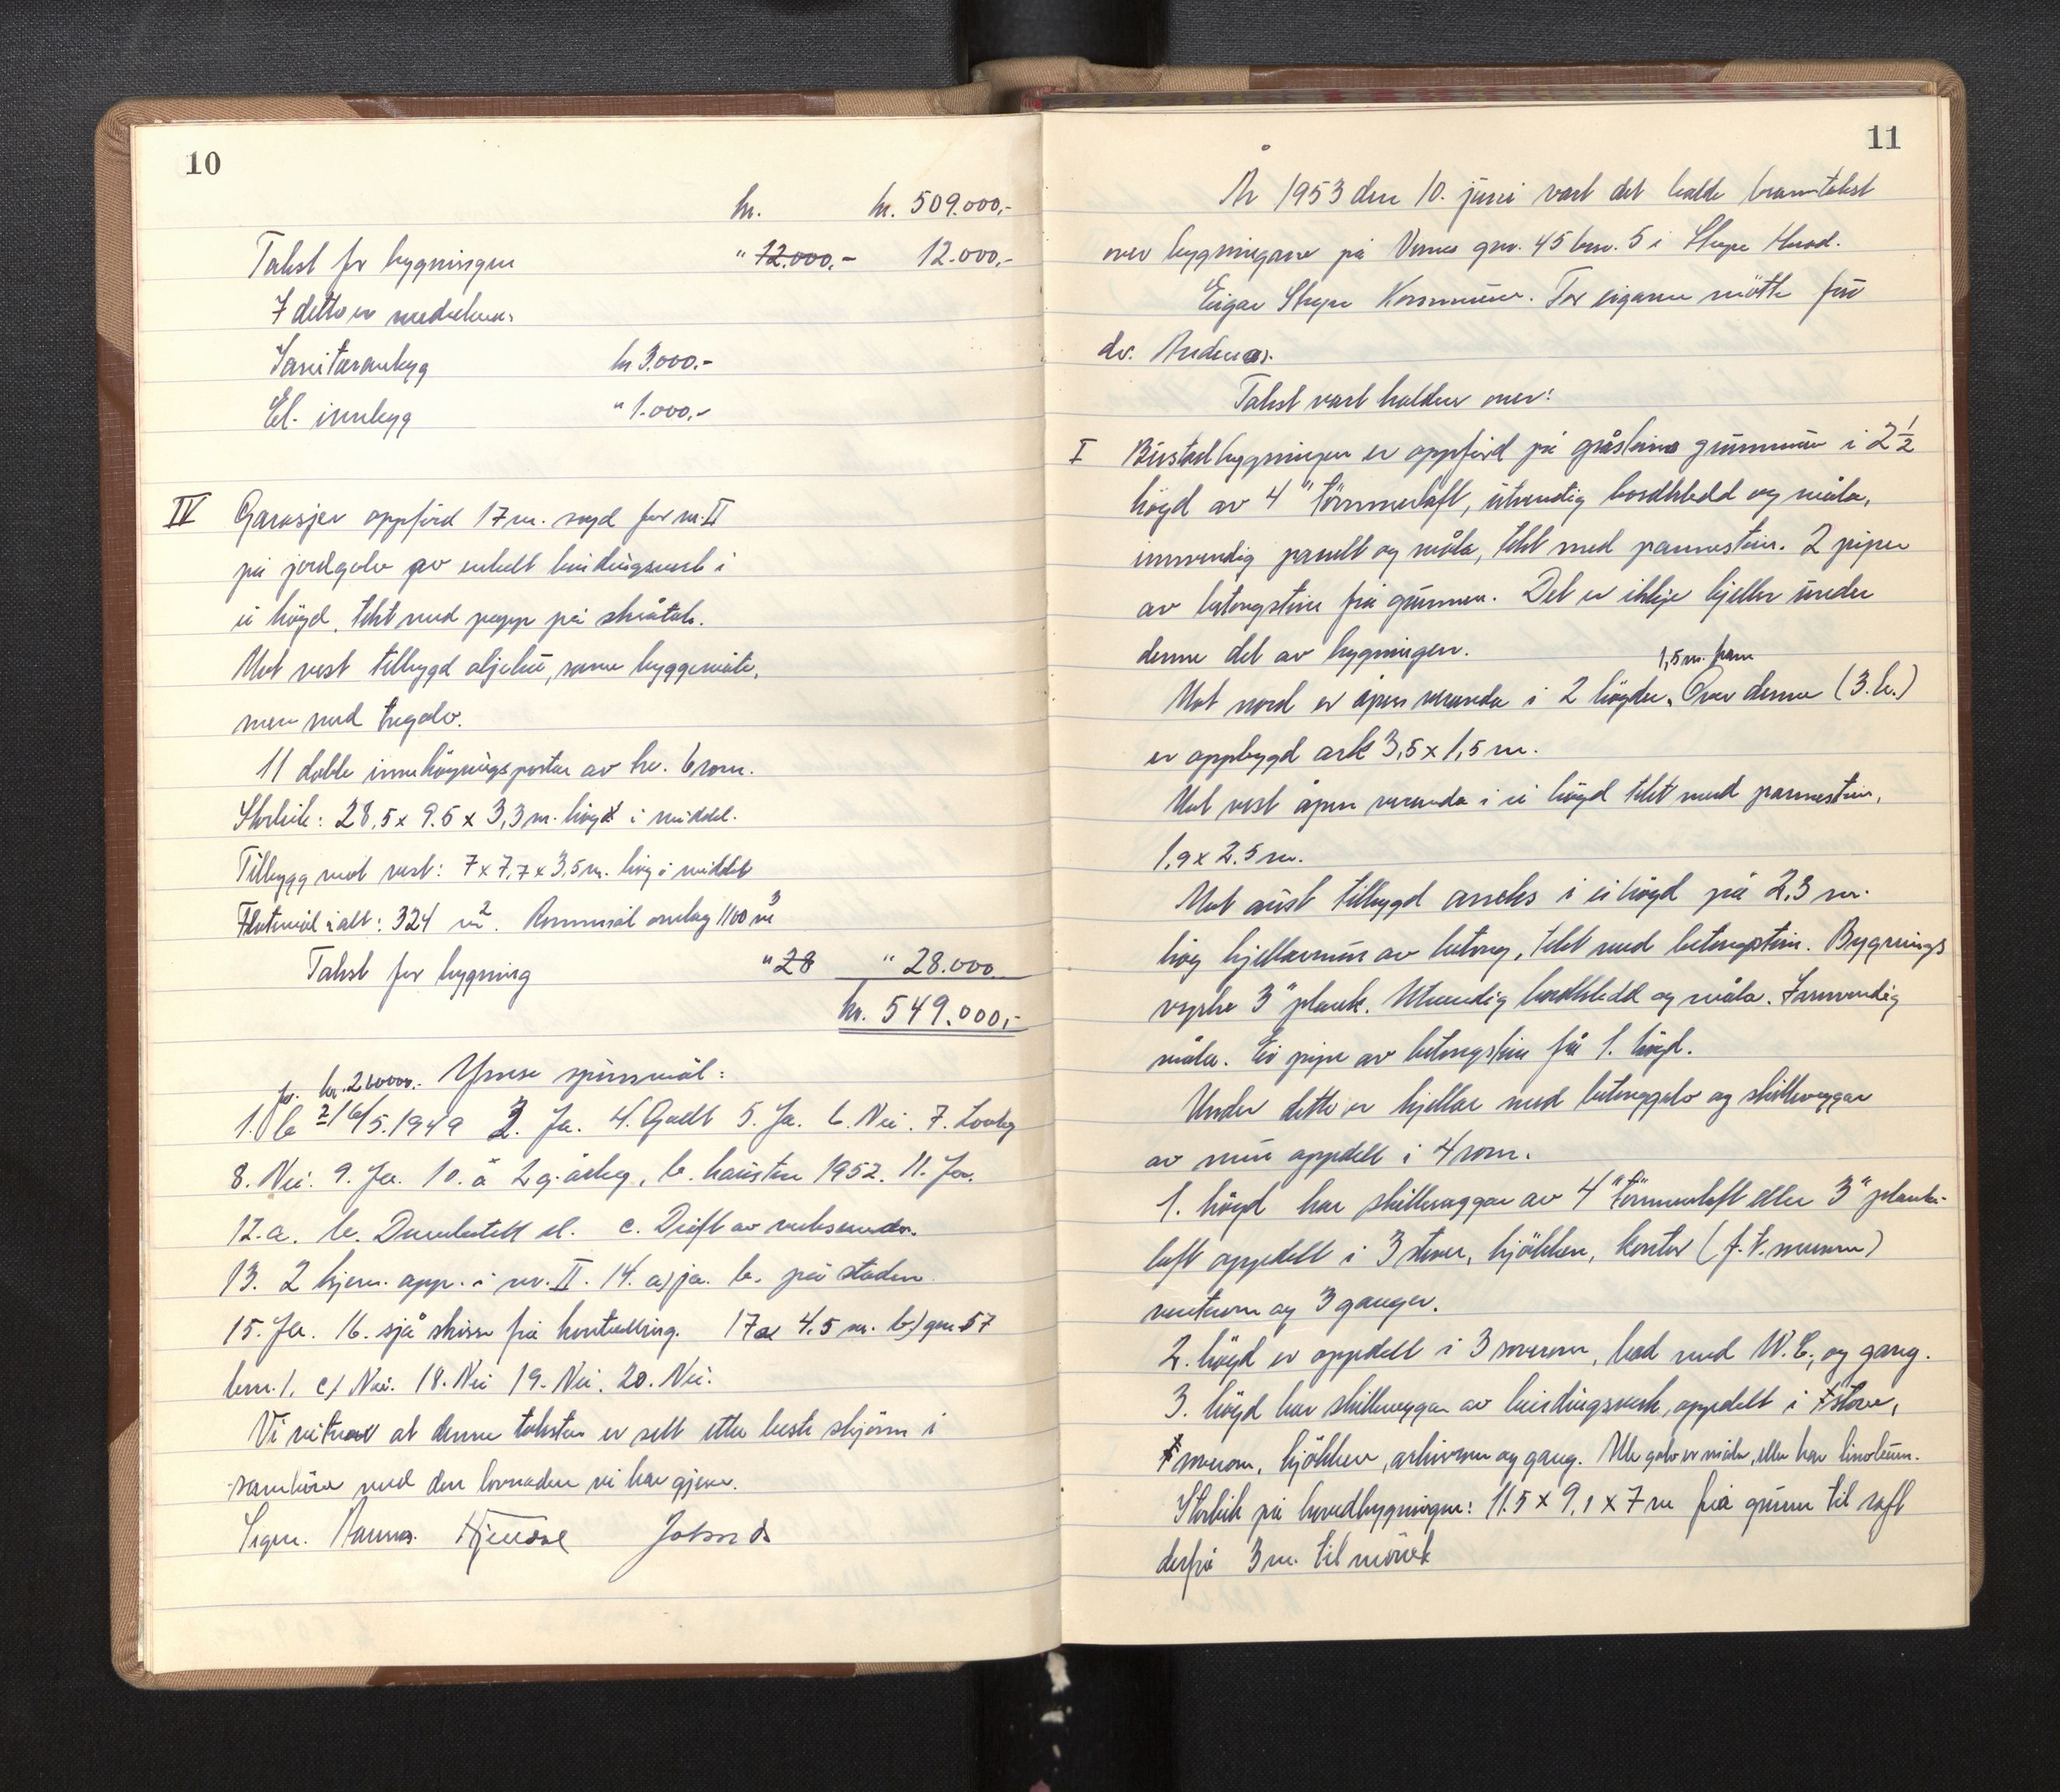 10
kr. kr. 509.000,-
Takst for bygningen " 12.000,- 12.000,-
I dette er medrekna:
Sanitæranlegg kr 3.000.-
El. innlegg " 1.000,-
IV Garasjer oppførd 17 m. syd for nr. II
på jordgolv av enkelt bindingsverk i
ei høgd, tekt med papp på skråtak.
Mot vest tilbygd oljebu, same byggemåte,
men med tregolv.
11 doble innkøyringsportar av kr. 6 rom.
Storleik: 28,5 x 9.5 x 3,3 m. høgd i middel.
Tilbygg mot vest: 7 x 7,7 x 3,5 m. høg i middel
Flatemål i alt: 324 m². Rommål omlag 1100 m³
Takst for bygning " 28 " 28.000
kr. 549.000,-
Ymse spørsmål:
kr. 210000.-
1. b 16/5.1949 3. Ja. 4. Godt 5. Ja. 6. Nei. 7. Lovleg
8. Nei. 9. Ja. 10. a 2 g. årleg, b. hausten 1952. 11. Ja.
12. a. b. el. c. Drift av
13. 2 kjem. app. i nr. II. 14. a) ja. b. på staden
15. Ja. 16. sjå skisse frå 17 a 4.5 m. b) gnr 57
bnr. 1. c) Nei. 18. Nei 19. Nei. 20. Nei.
Vi vitnar at denne taksten er sett etter beste skjønn i
samhøve med den lovnaden vi har gjeve.
Sign.
11
År 1953 den 10. juni vart det halde branntakst
over bygningane på gnr. 45 bnr. 5 i Herad.
Eigar Kommune. For eigaren møtte
Takst vart halden over:
I Bustadbygningen er oppførd på gråsteins grunnmur i 2 1/2
høgd av 4" tømmerlaft, utvendig bordkledd og måla,
innvendig panelt og måla, tekt med pannestein. 2 piper
av betongstein frå grunnen. Det er ikkje kjellar under
denne del av bygningen.
1,5 m. fram
Mot nord er åpen veranda i 2 høgder. Over denne (3. h.)
er oppbygd ark 3,5 x 1,5 m.
Mot vest åpen veranda i ei høgd tekt med pannestein,
1,9 x 2.5 m.
Mot aust tilbygd anneks i ei høgd på 2,3 m.
høg kjellarmur av betong, tekt med betongstein. Bygnings
3" plank. Utvendig bordkledd og måla. Innvendig
måla. Ei pipe av betongstein frå 1. høgd.
Under dette er kjellar med betonggolv og skilleveggar
av mur oppdelt i 4 rom.
1. høgd har skilleveggar av 4" tømmerlaft eller 3" planke-
laft oppdelt i 3 stover, kjøkken, kontor (f. t.
venterom og 3 ganger.
2. høgd er oppdelt i 3 soverom, bad med W.C., og gang.
3. høgd har skilleveggar av bindingsverk, oppdelt i stove,
soverom, kjøkken, arkivrom og gang. Alle golv er måla, eller har linoleum.
Storleik på hovedbygningen: 11.5 x 9,1 x 7 m frå grunn til raft
derfrå 3 m. til møne